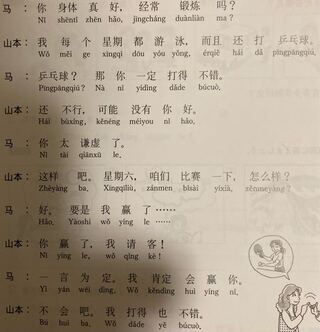 马： 你 身体 真 好，经常 锻炼 吗？
Nǐ shēntǐ zhēn hǎo, jīngcháng duànliàn ma?
山本：我 每 个 星期 都 游泳，而且 还 打 乒乓球。
Wǒ měi ge xīngqī dōu yóu yǒng, érqiě hái dǎ pīngpāngqiú.
马： 乒乓球？ 那 你 一定 打得 不错。
Pīngpāngqiú? Nà nǐ yídìng dǎde búcuò.
山本：还 不行，可能 没有 你 好。
Hái bùxíng, kěnéng méiyou nǐ hǎo.
马： 你 太 谦虚 了。
Nǐ tài qiānxū le.
山本：这样 吧。星期六，咱们 比赛 一下，怎么样？
Zhèyàng ba. Xīngqīliù, zánmen bǐsài yíxià, zěnmeyàng?
马： 好。要是 我 赢 了……
Hǎo. Yàoshi wǒ yíng le……
山本：你 赢 了，我 请 客！
Nǐ yíng le, wǒ qǐng kè!
马： 一 言 为 定。我 肯定 会 赢 你。
Yì yán wéi dìng. Wǒ kěndìng huì yíng nǐ.
山本：不 会 吧。我 打得 也 不错。
Bú huì ba. Wǒ dǎde yě búcuò.